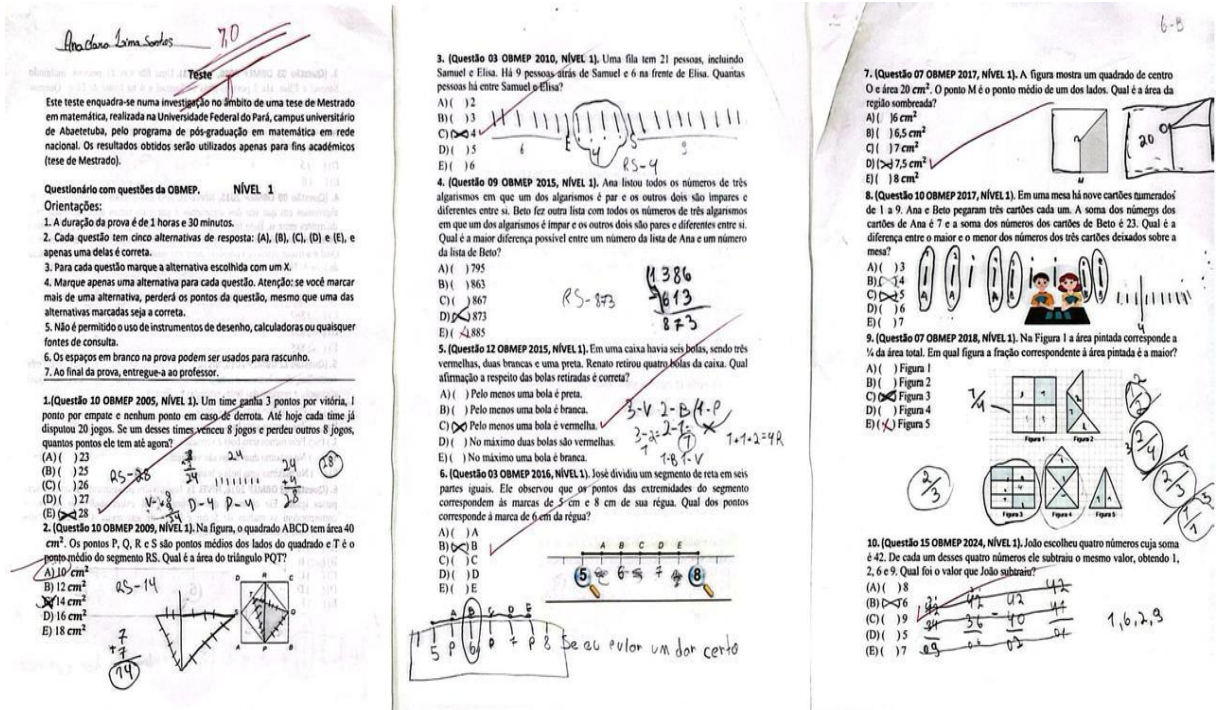 Ana Clara Lima Santos
7,0
Teste
Este teste enquadra-se numa investigação no âmbito de uma tese de Mestrado
em matemática, realizada na Universidade Federal do Pará, campus universitário
de Abaetetuba, pelo programa de pós-graduação em matemática em rede
nacional. Os resultados obtidos serão utilizados apenas para fins académicos
(tese de Mestrado).
Questionário com questões da OBMEP. NÍVEL 1
Orientações:
1. A duração da prova é de 1 horas e 30 minutos.
2. Cada questão tem cinco alternativas de resposta: (A), (B), (C), (D) e (E), e
apenas uma delas é correta.
3. Para cada questão marque a alternativa escolhida com um X.
4. Marque apenas uma alternativa para cada questão. Atenção: se você marcar
mais de uma alternativa, perderá os pontos da questão, mesmo que uma das
alternativas marcadas seja a correta.
5. Não é permitido o uso de instrumentos de desenho, calculadoras ou quaisquer
fontes de consulta.
6. Os espaços em branco na prova podem ser usados para rascunho.
7. Ao final da prova, entregue-a ao professor.
1.(Questão 10 OBMEP 2005, NÍVEL 1). Um time ganha 3 pontos por vitória, 1
ponto por empate e nenhum ponto em caso de derrota. Até hoje cada time já
disputou 20 jogos. Se um desses times venceu 8 jogos e perdeu outros 8 jogos,
quantos pontos ele tem até agora?
(A) ( ) 23
(B) ( ) 25
(C) ( ) 26
(D) ( ) 27
(E) 28
RS-28
24
24
+4
28
28
2. (Questão 10 OBMEP 2009, NÍVEL 1). Na figura, o quadrado ABCD tem área 40
cm². Os pontos P, Q, R e S são pontos médios dos lados do quadrado e T é o
ponto médio do segmento RS. Qual é a área do triângulo PQT?
A) 10 cm²
B) 12 cm²
14 cm²
D) 16 cm²
E) 18 cm²
RS-14
7
+7
14
3. (Questão 03 OBMEP 2010, NÍVEL 1). Uma fila tem 21 pessoas, incluindo
Samuel e Elisa. Há 9 pessoas atrás de Samuel e 6 na frente de Elisa. Quantas
pessoas há entre Samuel e Elisa?
A) ( ) 2
B) ( ) 3
C) 4
D) ( ) 5
E) ( ) 6
6 E 4 S 9
RS-4
4. (Questão 09 OBMEP 2015, NÍVEL 1). Ana listou todos os números de três
algarismos em que um dos algarismos é par e os outros dois são ímpares e
diferentes entre si. Beto fez outra lista com todos os números de três algarismos
em que um dos algarismos é ímpar e os outros dois são pares e diferentes entre si.
Qual é a maior diferença possível entre um número da lista de Ana e um número
da lista de Beto?
A) ( ) 795
B) ( ) 863
C) ( ) 867
D) 873
E) ( ) 885
RS-873
613
873
5. (Questão 12 OBMEP 2015, NÍVEL 1). Em uma caixa havia seis bolas, sendo três
vermelhas, duas brancas e uma preta. Renato retirou quatro bolas da caixa. Qual
afirmação a respeito das bolas retiradas é correta?
A) ( ) Pelo menos uma bola é preta.
B) ( ) Pelo menos uma bola é branca.
C) Pelo menos uma bola é vermelha.
D) ( ) No máximo duas bolas são vermelhas.
E) ( ) No máximo uma bola é branca.
3-V 2-B 1-P
1-B 1-V
1+1+2=4R
6. (Questão 03 OBMEP 2016, NÍVEL 1). José dividiu um segmento de reta em seis
partes iguais. Ele observou que os pontos das extremidades do segmento
correspondem às marcas de 5 cm e 8 cm de sua régua. Qual dos pontos
corresponde à marca de 6 cm da régua?
A) ( ) A
B) B
C) ( ) C
D) ( ) D
E) ( ) E
A B C D E
5 6 7 8
A B C D E
5 P 6 P 7 P 8
6-B
7. (Questão 07 OBMEP 2017, NÍVEL 1). A figura mostra um quadrado de centro
O e área 20 cm². O ponto M é o ponto médio de um dos lados. Qual é a área da
região sombreada?
A) ( ) 6 cm²
B) ( ) 6,5 cm²
C) ( ) 7 cm²
D) 7,5 cm²
E) ( ) 8 cm²
M
20
O
8. (Questão 10 OBMEP 2017, NÍVEL 1). Em uma mesa há nove cartões numerados
de 1 a 9. Ana e Beto pegaram três cartões cada um. A soma dos números dos
cartões de Ana é 7 e a soma dos números dos cartões de Beto é 23. Qual é a
diferença entre o maior e o menor dos números dos três cartões deixados sobre a
mesa?
A) ( ) 3
B) 4
C) 5
D) ( ) 6
E) ( ) 7
4
9. (Questão 07 OBMEP 2018, NÍVEL 1). Na Figura 1 a área pintada corresponde a
¼ da área total. Em qual figura a fração correspondente à área pintada é a maior?
A) ( ) Figura 1
B) ( ) Figura 2
C) Figura 3
D) ( ) Figura 4
E) (X) Figura 5
1/4
Figura 1
Figura 2
2/3
Figura 3
Figura 4
Figura 5
10. (Questão 15 OBMEP 2024, NÍVEL 1). João escolheu quatro números cuja soma
é 42. De cada um desses quatro números ele subtraiu o mesmo valor, obtendo 1,
2, 6 e 9. Qual foi o valor que João subtraiu?
(A) ( ) 8
(B) 6
(C) ( ) 9
(D) ( ) 5
(E) ( ) 7
1,6,2,9